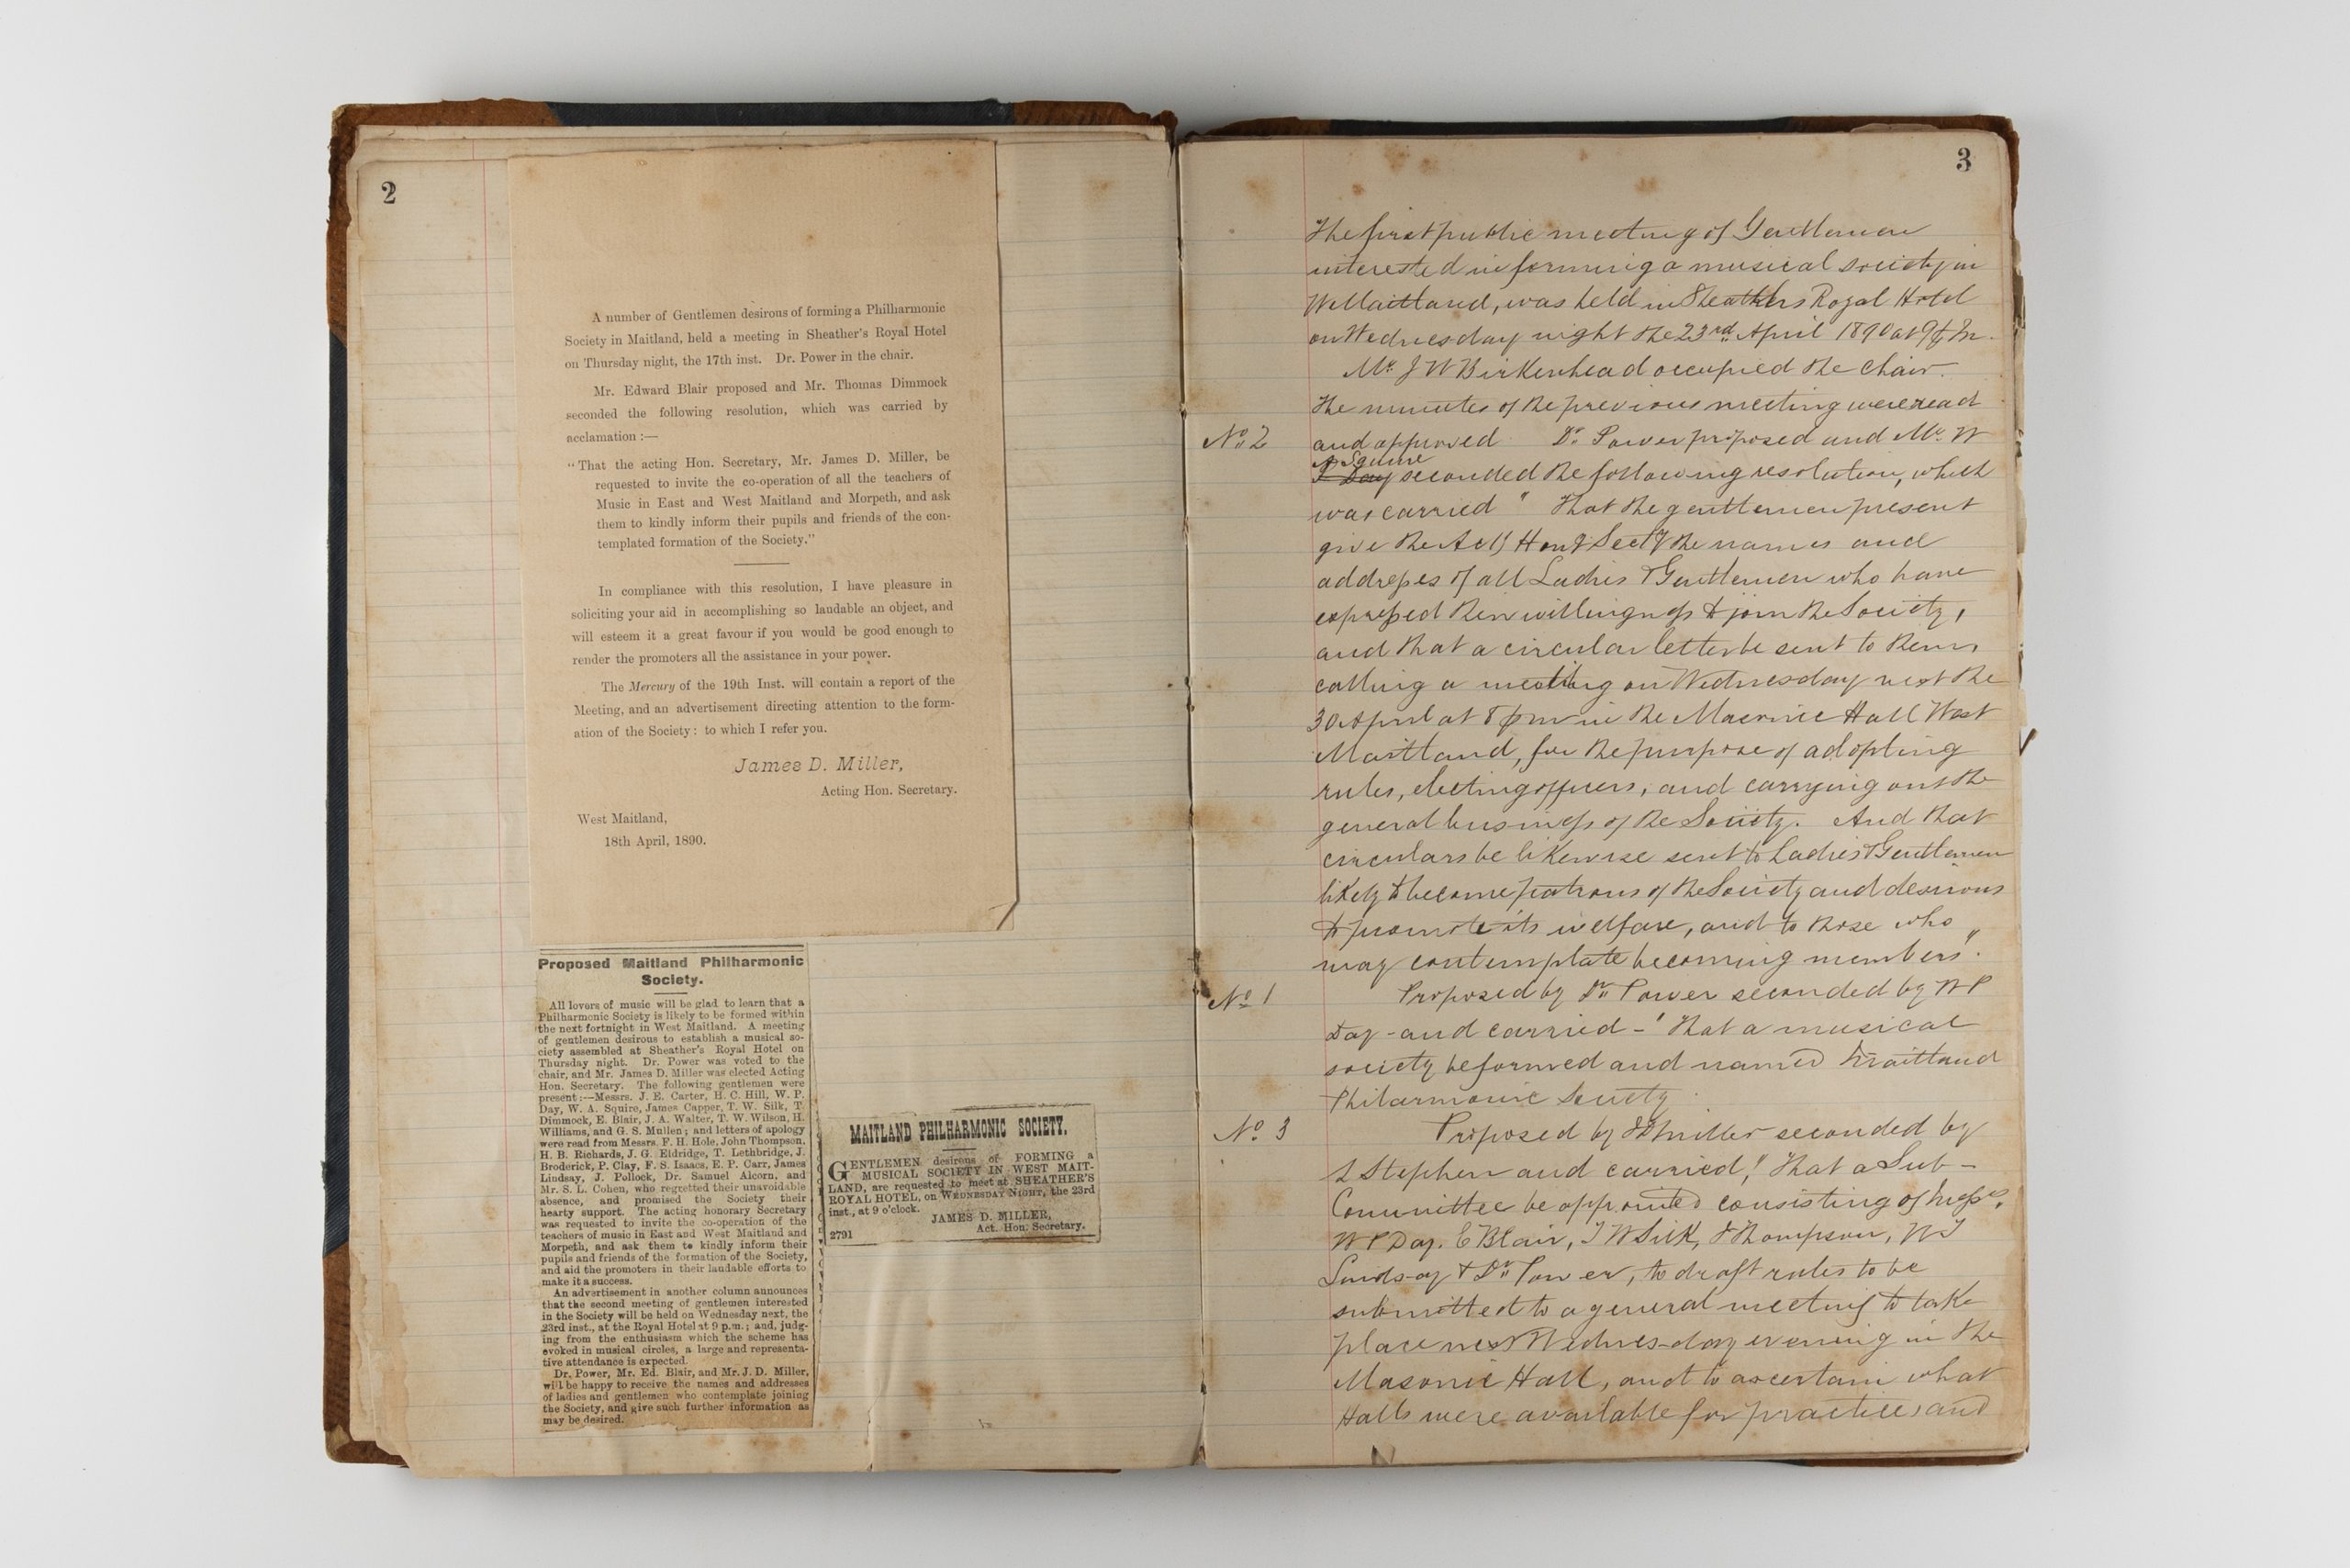 2
A number of Gentlemen desirous of forming a Philharmonic
Society in Maitland, held a meeting in Sheather's Royal Hotel
on Thursday night, the 17th inst. Dr. Power in the chair.
Mr. Edward Blair proposed and Mr. Thomas Dimmock
seconded the following resolution, which was carried by
acclamation :—
"That the acting Hon. Secretary, Mr. James D. Miller, be
requested to invite the co-operation of all the teachers of
Music in East and West Maitland and Morpeth, and ask
them to kindly inform their pupils and friends of the con-
templated formation of the Society."
In compliance with this resolution, I have pleasure in
soliciting your aid in accomplishing so laudable an object, and
will esteem it a great favour if you would be good enough to
render the promoters all the assistance in your power.
The Mercury of the 19th Inst. will contain a report of the
Meeting, and an advertisement directing attention to the form-
ation of the Society: to which I refer you.
James D. Miller,
Acting Hon. Secretary.
West Maitland,
18th April, 1890.
Proposed Maitland Philharmonic
Society.
All lovers of music will be glad to learn that a
Philharmonic Society is likely to be formed within
the next fortnight in West Maitland. A meeting
of gentlemen desirous to establish a musical so-
ciety assembled at Sheather's Royal Hotel on
Thursday night. Dr. Power was voted to the
chair, and Mr. James D. Miller was elected Acting
Hon. Secretary. The following gentlemen were
present :—Messrs. J. E. Carter, H. C. Hill, W. P.
Day, W. A. Squire, James Capper, T. W. Silk, T.
Dimmock, E. Blair, J. A. Walter, T. W. Wilson, H.
Williams, and G. S. Mullen; and letters of apology
were read from Messrs. F. H. Hole, John Thompson,
H. B. Richards, J. G. Eldridge, T. Lethbridge, J.
Broderick, P. Clay, F. S. Isaacs, E. P. Carr, James
Lindsay, J. Pollock, Dr. Samuel Alcorn, and
Mr. S. L. Cohen, who regretted their unavoidable
absence, and promised the Society their
hearty support. The acting honorary Secretary
was requested to invite the co-operation of the
teachers of music in East and West Maitland and
Morpeth, and ask them to kindly inform their
pupils and friends of the formation of the Society,
and aid the promoters in their laudable efforts to
make it a success.
An advertisement in another column announces
that the second meeting of gentlemen interested
in the Society will be held on Wednesday next, the
23rd inst., at the Royal Hotel at 9 p.m.; and, judg-
ing from the enthusiasm which the scheme has
evoked in musical circles, a large and representa-
tive attendance is expected.
Dr. Power, Mr. Ed. Blair, and Mr. J. D. Miller,
will be happy to receive the names and addresses
of ladies and gentlemen who contemplate joining
the Society, and give such further information as
may be desired.
MAITLAND PHILHARMONIC SOCIETY.
GENTLEMEN desirous of FORMING a
MUSICAL SOCIETY IN WEST MAIT-
LAND, are requested to meet at SHEATHER'S
ROYAL HOTEL, on WEDNESDAY NIGHT, the 23rd
inst., at 9 o'clock.
JAMES D. MILLER,
2791 Act. Hon. Secretary.
3
The first public meeting of Gentlemen
interested in forming a musical society in
W Maitland, was held in Sheathers Royal Hotel
on Wednesday night the 23rd April 1890 at 9 p.m.
Mr. J W Birkenhead occupied the chair.
The minutes of the previous meeting were read
No 2 and approved Dr. Power proposed and Mr. W
A Squire
P Day seconded the following resolution, which
was carried " That the gentlemen present
give the Actg Hon Secty the names and
addresses of all Ladies & Gentlemen who have
expressed their willingness to join the Society,
and that a circular letter be sent to them,
calling a meeting on Wednesday next the
30 April at 8 pm in the Masonic Hall West
Maitland, for the purpose of adopting
rules, electing officers, and carrying out the
general business of the Society. And that
circulars be likewise sent to Ladies & Gentlemen
likely to become patrons of the Society and desirous
to promote its welfare, and to those who
may contemplate becoming members".
No 1 Proposed by Dr. Power seconded by W P
Day - and carried - "That a musical
society be formed and named Maitland
Philarmonic Society.
No 3 Proposed by J D Miller seconded by
Stephen and carried, "That a Sub-
Committee be appointed consisting of Messrs,
W P Day. E Blair, T W Silk, J Thompson, W J
Lindsay & Dr Power, to draft rules to be
submitted to a general meeting to take
place next Wednesday evening in the
Masonic Hall, and to ascertain what
Halls were available for practice, and